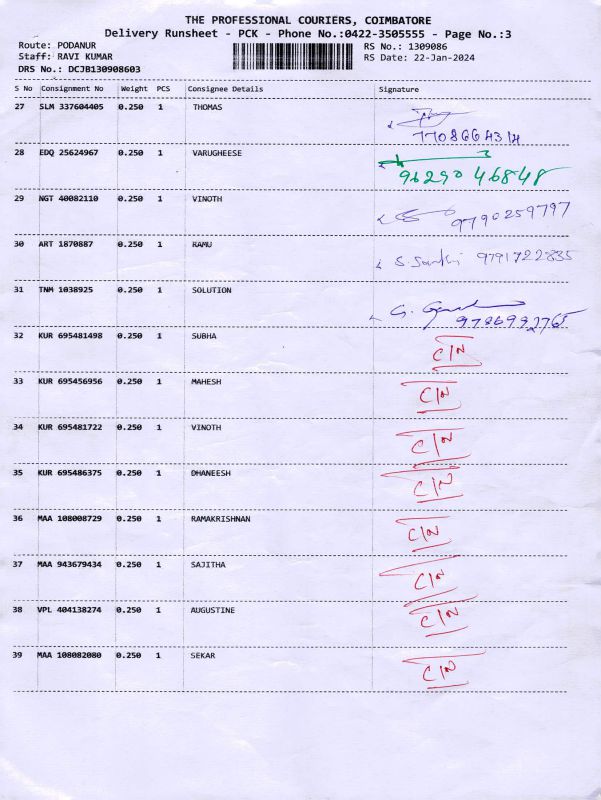 THE PROFESSIONAL COURIERS, COIMBATORE
Delivery Runsheet - PCK - Phone No.:0422-3505555 - Page No.:3
Route: PODANUR RS No.: 1309086
Staff: RAVI KUMAR RS Date: 22-Jan-2024
DRS No.: DCJB130908603
S No Consignment No Weight PCS Consignee Details Signature
27 SLM 337604405 0.250 1 THOMAS
7708664314
28 EDQ 25624967 0.250 1 VARUGHEESE
96290 46848
29 NGT 40082110 0.250 1 VINOTH
9790259797
30 ART 1870887 0.250 1 RAMU S. 9791722835
31 TNM 1038925 0.250 1 SOLUTION G.
9786992765
32 KUR 695481498 0.250 1 SUBHA C/N
33 KUR 695456956 0.250 1 MAHESH C/N
34 KUR 695481722 0.250 1 VINOTH C/N
35 KUR 695486375 0.250 1 DHANEESH C/N
36 MAA 108008729 0.250 1 RAMAKRISHNAN C/N
37 MAA 943679434 0.250 1 SAJITHA C/N
38 VPL 404138274 0.250 1 AUGUSTINE C/N
39 MAA 108082080 0.250 1 SEKAR C/N